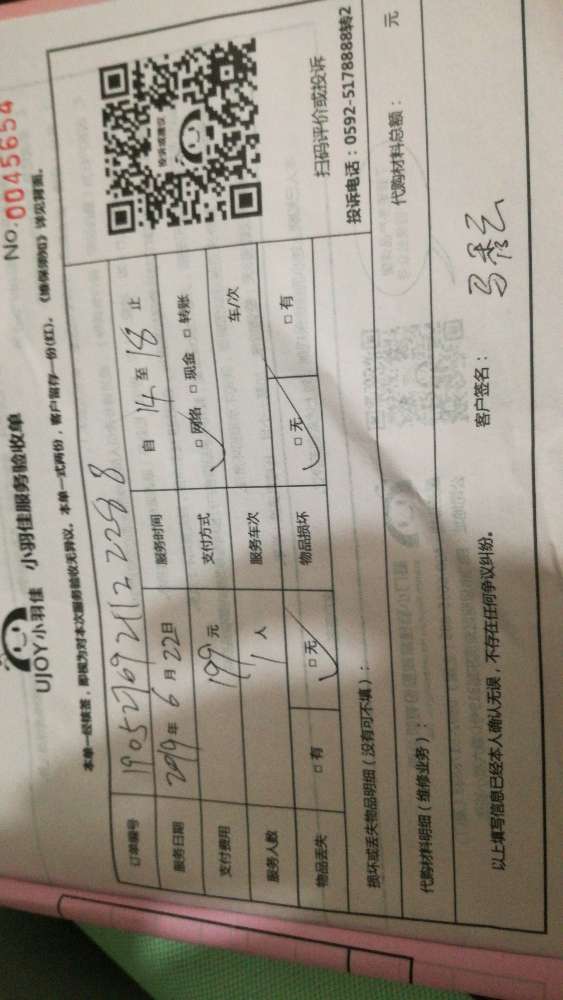 UJOY小羽佳 小羽佳服务验收单 No.0045654
本单一经核签，即视为对本次服务验收无异议。本单一式两份，客户留存一份(红)。《维保须知》详见背面。
订单编号
服务日期 2019年6月22日 服务时间 自 14 至 18 止
支付费用 199元 支付方式 □网络 □现金 □转账
服务人数 1人 服务车次 车/次
物品丢失 □有 □无 物品损坏 □无 □有
投诉或建议
扫码评价或投诉
投诉电话：0592-5178888转2
损坏或丢失物品明细（没有可不填）：
代购材料明细（维修业务）： 代购材料总额： 元
以上填写信息已经本人确认无误，不存在任何争议纠纷。 客户签名：